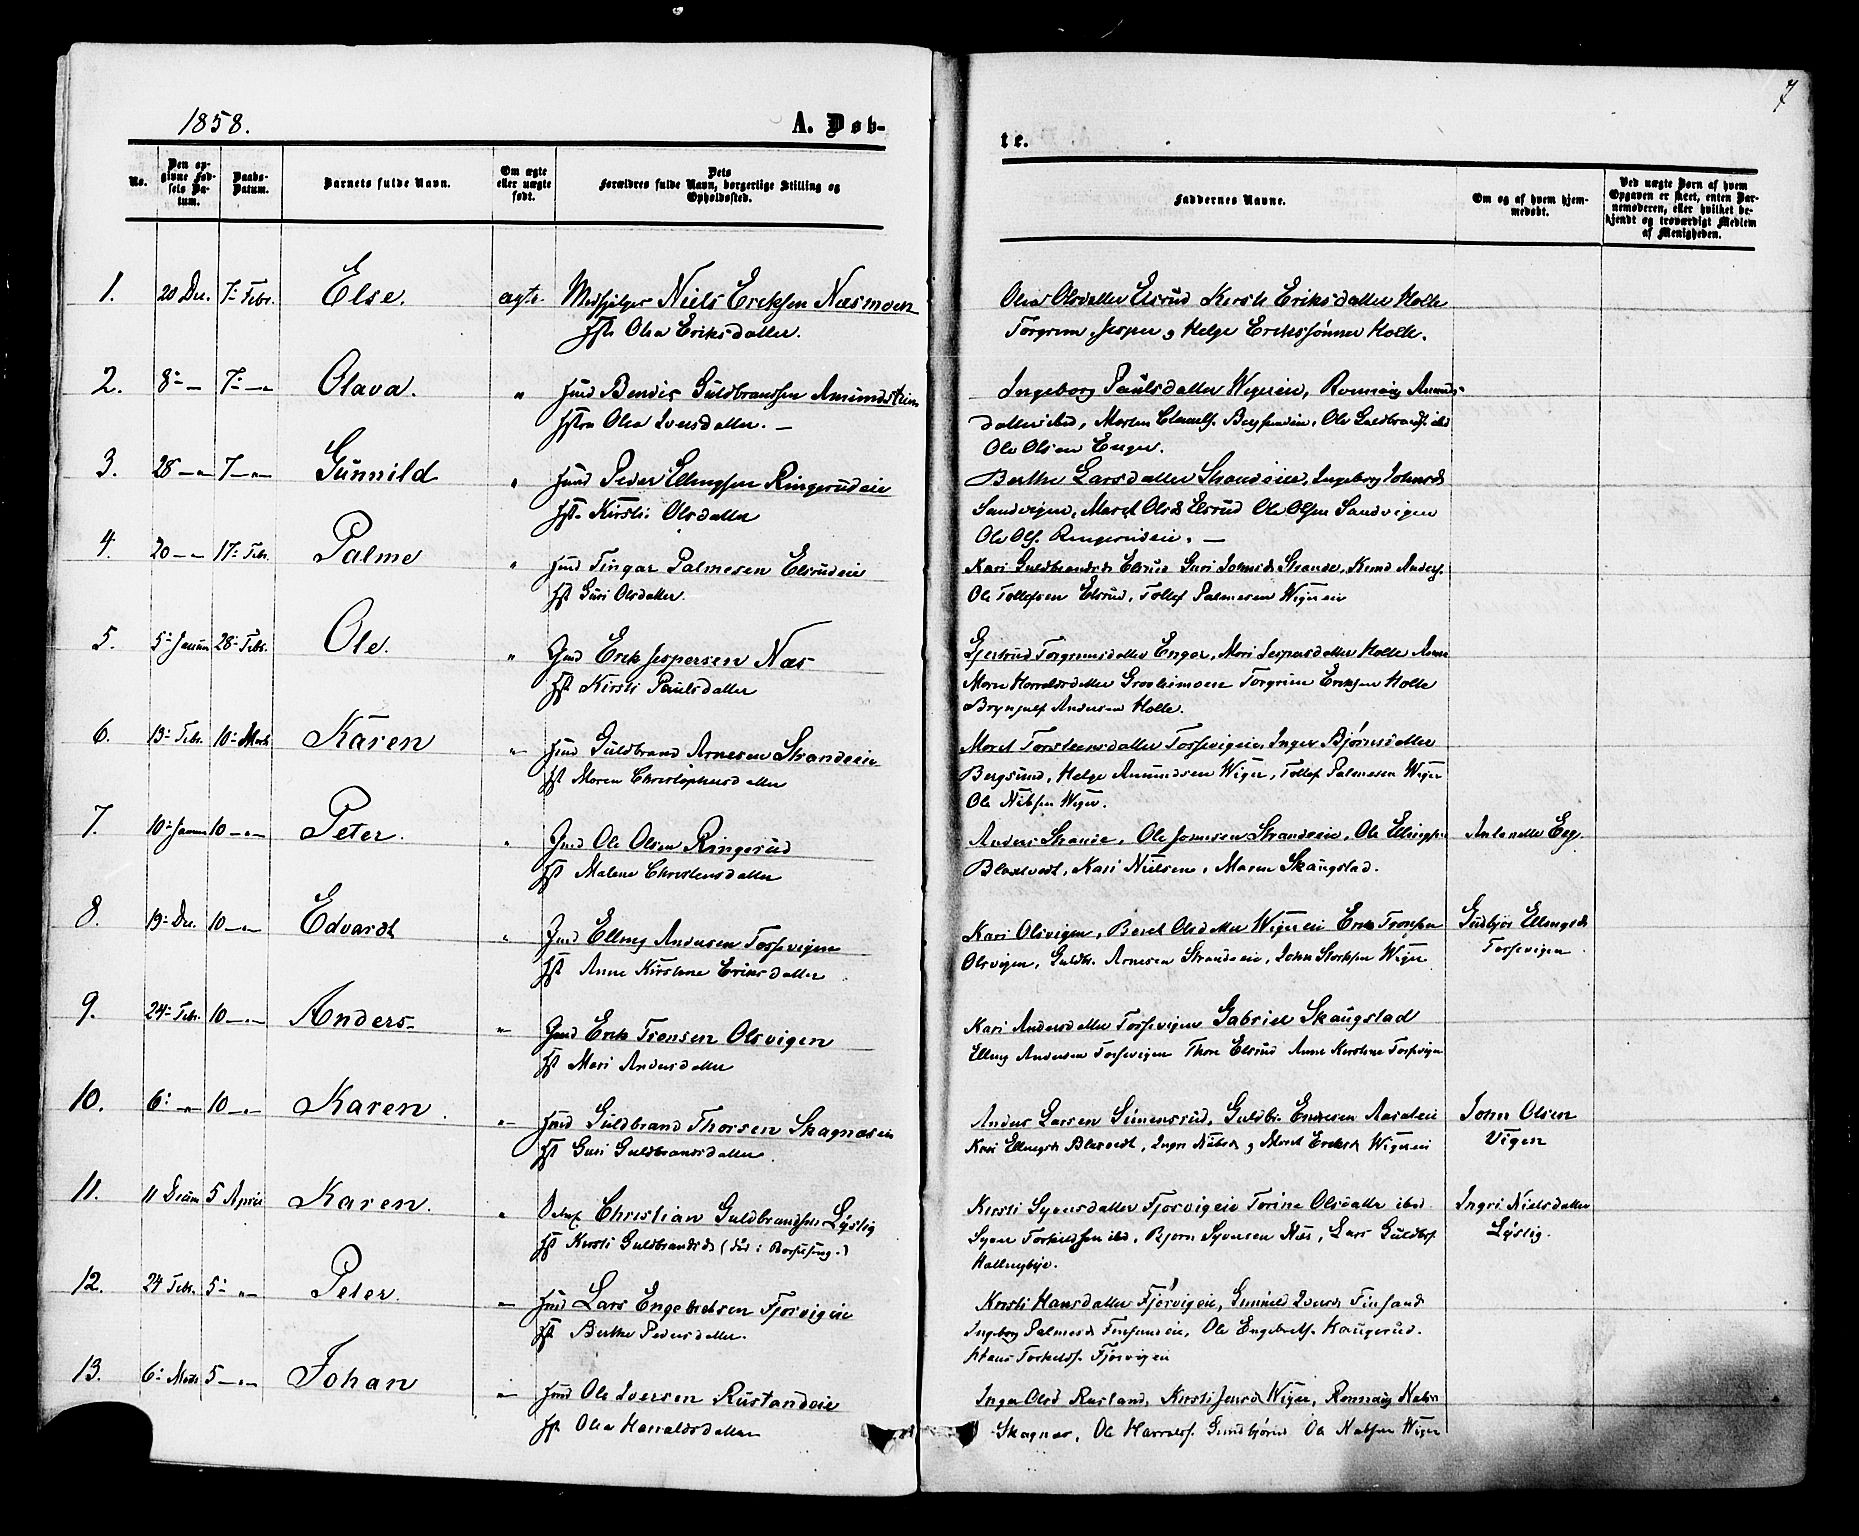 1858.
A. Døb-
te.
7
No.
Den op-
givne Fød-
sels Da-
tum.
Daabs-
Datum.
Barnets fulde Navn.
Om ægte
eller uægte
født.
Dets
Forældres fulde Navn, borgerlige Stilling og
Opholdssted.
Faddernes Navne.
Om og af hvem hjem-
medøbt.
Ved uægte Børn af hvem
Opgaven er skeet, enten Bar-
nemoderen, eller hvilket be-
kjendt og troværdigt Medlem
af Menigheden.
1. 20 Dec. 7- Febr. Else. ægte Niels Ericksen Næsmoen
Olea Eriksdatter.
Olea Olsdatter Elsrud Kirsti Eriksdatter Holte
Torgrim, Jesper og Helge Erikssønner Holte.
2. 8- 7- Olava. " Bendic Guldbrandsen Amundstein
Olea Iversdatter. —
Ingeborg Paulsdatter Wigereie, Ronnaug
datter ibid, Morten Ole Guldbrands. ibid
Ole Olsen Enger.
3. 28 7 Gunnild " Peder Ellingsen Ringerudeie
Kirsti Olsdatter
Berthe Larsdatter Strandeie, Ingeborg
Sandvigen, Maret Olsd Elsrud Ole Olsen Sandvigen
Ole Ols. Ringerudeie. —
4. 20 17- Febr. Palme " Tingar Palmesen Elsrudeie
Guri Olsdatter.
Kari Guldbrandsd. Elsrud Guri Strande,
Ole Tollefsen Elsrud, Tollef Palmesen Wigereie
5. 5- Januar 28- Febr. Ole. " Erik Jespersen Næs
Kirsti Paulsdatter
Gjertrud Torgrimsdatter Enger, Mari Jespersdatter Holte Anne
Marie Torgrim Eriksen Holte
Brynjulf Andersen Holte.
6. 13- Febr. 10- Marts Karen " Guldbrand Arnesen Strandeie
Maren Christophersdatter
Maret Torstensdatter Inger Bjørnsdatter
Bergsund, Helge Amundsen Wiger, Tollef Palmesen Wiger
Ole Nilsen Wiger.
7. 10- Januar 10 Peter. " Ole Olsen Ringerud
Malene Christensdatter
Anders Ole Strandeie, Ole Ellingsen
Kari Nielsen, Maren Skaugstad.
8. 19- Dec. 10 Edvardt " Elling Andersen Torsevigen
Anne Kirstine Eriksdatter
Kari Olsvigen, Beret Olsdatter Wigereie Erik
Olsvigen, Guldb. Arnesen Strandeie, John Wiger
Gudbjør Ellingsd.
Torsevigen
9. 24- Febr. 10 Anders " Erik Tronsen Olsvigen
Mari Andersdatter
Kari Andersdatter Torsevigen Gabriel Skaugstad
Elling Andersen Torsevigen Thore Elsrud Anne Kirstine Torsevigen
10. 6- 10 Karen. " Guldbrand Thorsen
Guri Guldbrandsdatter
Anders Larsen Simensrud, Guldbr.
Kari Ellingsd. og Maret Ericksd. Wigereie
John Olsen
Vigen
11. 11 5 April Karen. " Christian Guldbrandsen Lyslig
Kirsti Guldbrandsd.
Kirsti Syversdatter Fjorvigeie Torine Olsdatter ibid
Syver Torkildsen ibid, Bjorn Syversen Næs, Lars Guldbs.
Hallingbye.
Ingri Nielsdatter
Lyslig.
12. 24 Febr. 5- Peter. " Lars Engebretsen Fjorvigeie
Berthe Pedersdatter.
Kirsti Hansdatter Fjørvigeie, Gunnild Iversd. Finsand
Ingeborg Palmesd. Finsandeie, Ole Engebrets. Haugerud.
Hans Torkelds. Fjorvigeie
13. 6- Marts 5 Johan " Ole Iversen Rustandeie
Olea Haraldsdatter
Inger Olsd Rustand, Kirsti Jensd Wiger, Ronnaug
Skagnæs, Ole Haralds. Ole Nielsen Wiger